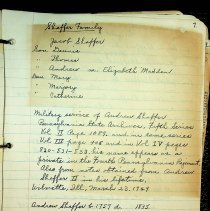 7
Shaffer Family
Jacob Shaffer
Son Dennis
" Thomas
" Andrew m. Elizabeth Madden
Dau Mary
" Margery
" Catherine
Military service of Andrew Shaffer
Pennsylvania State Archives, Fifth Series
Vol II Page 1089, and in same series
Vol III page 905 and in Vol IV pages
520-521-753, his name appears as a
private in the Fourth Pennsylvania Regiment.
Also from notes obtained from Andrew
Shaffer II in his lifetime,
Wilmette, Ill, March 23, 1929
Andrew Shaffer b 1759 d. 1835